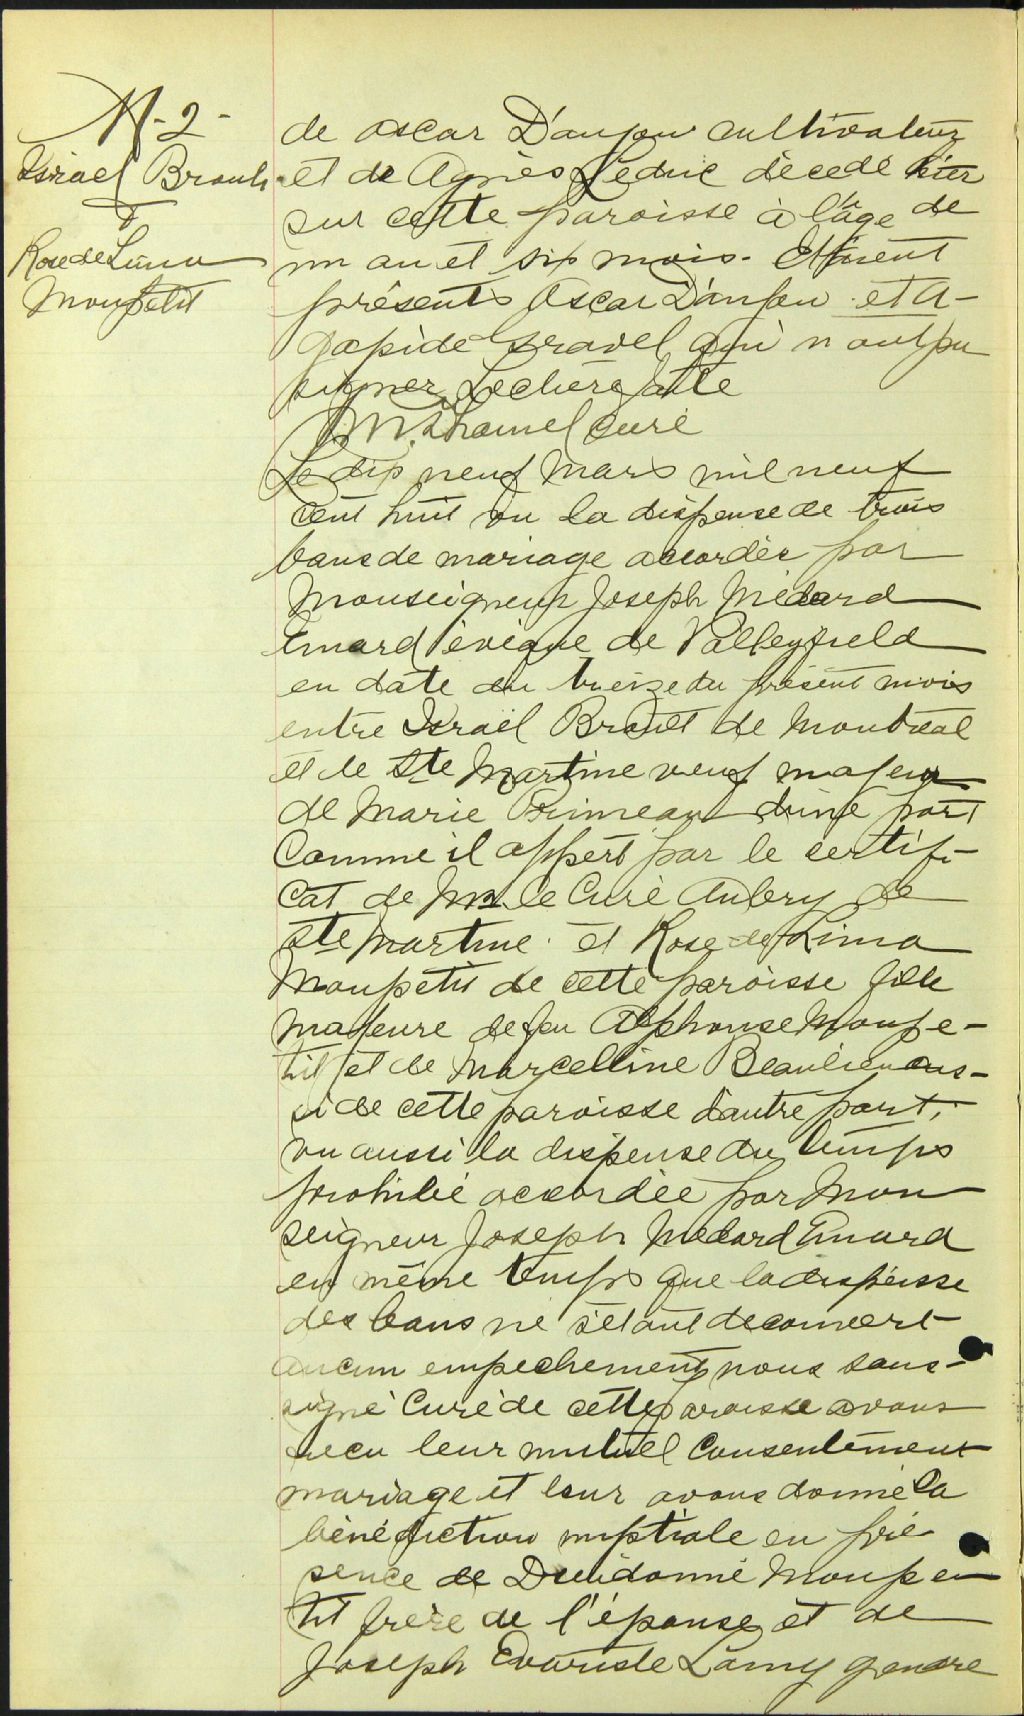 M-2-
Israel Brault
&
Rose de Lima
Monpetit
de Oscar D'anjou cultivateur
et de Agnès Leduc décédé hier
sur cette paroisse à l'âge de
un an et six mois. Etaient
présents Oscar D'anjou et A-
gapide Gravel qui n'ont pu
signer. Lecture faite
curé
Le dix neuf Mars mil neuf
cent huit vu la dispense de trois
bans de mariage accordée par
Monseigneur Joseph Médard
Emard évêque de Valleyfield
en date du treize du présent mois
entre Israël Brault de Montréal
et de Ste Martine veuf majeur
de Marie Primeau d'une part
Comme il appert par le certifi-
cat de Mr. le Curé Aubry de
Ste Martine et Rose de Lima
Monpetit de cette paroisse fille
majeure de feu Alphonse Monpe-
tit et de Marcelline Beaulieu aus-
si de cette paroisse d'autre part,
vu aussi la dispense du temps
prohibé accordée par Mon
seigneur Joseph Médard Emard
en même temps que la dispense
des bans ne s'étant decouvert
aucun empechement nous sous-
signé Curé de cette paroisse avons
recu leur mutuel consentement
mariage et leur avons donné la
bénédiction nuptiale en pré
sence de Dieudonné Monpe
tit frère de l'épouse et de
Joseph Evariste Lamy gendre